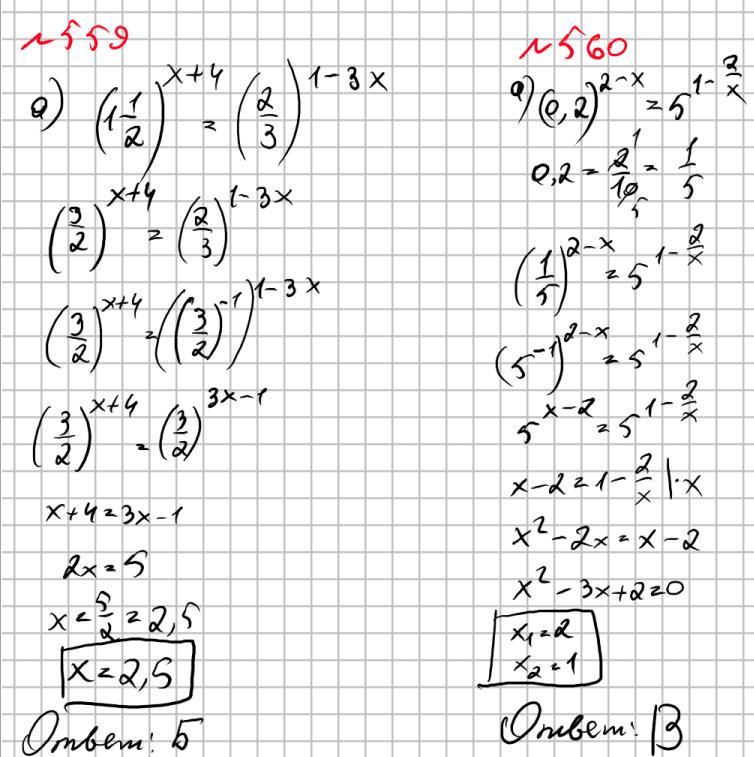 №559
а) (1 1/2)^(x+4) = (2/3)^(1-3x)
(3/2)^(x+4) = (2/3)^(1-3x)
(3/2)^(x+4) = ((3/2)^(-1))^(1-3x)
(3/2)^(x+4) = (3/2)^(3x-1)
x+4=3x-1
2x=5
x=5/2=2,5
x=2,5
Ответ: Б
№560
а) (0,2)^(2-x) = 5^(1-2/x)
0,2 = 2/10 = 1/5
1
5
(1/5)^(2-x) = 5^(1-2/x)
(5^(-1))^(2-x) = 5^(1-2/x)
5^(x-2) = 5^(1-2/x)
x-2=1-2/x |·x
x²-2x=x-2
x²-3x+2=0
x₁=2
x₂=1
Ответ: В